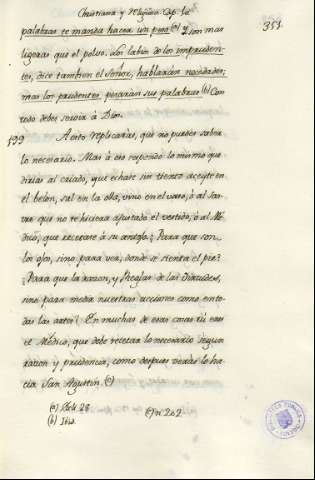 Christiana y Religiosa. Cap. 12
351
palabras te manda hacer un peso (a) Y son mas
ligeras que el polvo. Los labios de los impruden-
tes, dice tambien el Señor, hablarán necedades;
mas los prudentes pesarán sus palabras (b) Con
todo debes servir à Dios.
199 A esto replicarás, que no puedes saber
lo necesario. Mas à eso respondo lo mismo que
dirias al criado, que echase sin tiento aceyte en
el belon, sal en la olla, vino en el vaso; ò al Sas-
tre que no te hiciera ajustado el vestido; ò al Mé-
dico, que recetase à su antojo. ¿Para que son
los ojos, sino para ver, donde se sienta el pie?
¿Para que la razon, y Reglas de las Virtudes,
sino para medir nuestras acciones como en to-
das las artes? En muchas de esas cosas tu eres
el Médico, que debe recetar lo necesario segun
razon y prudencia, como despues verás lo ha-
cia San Agustin (c)
(a) Eccli 28
(b) Ibid.
(c) n. 202